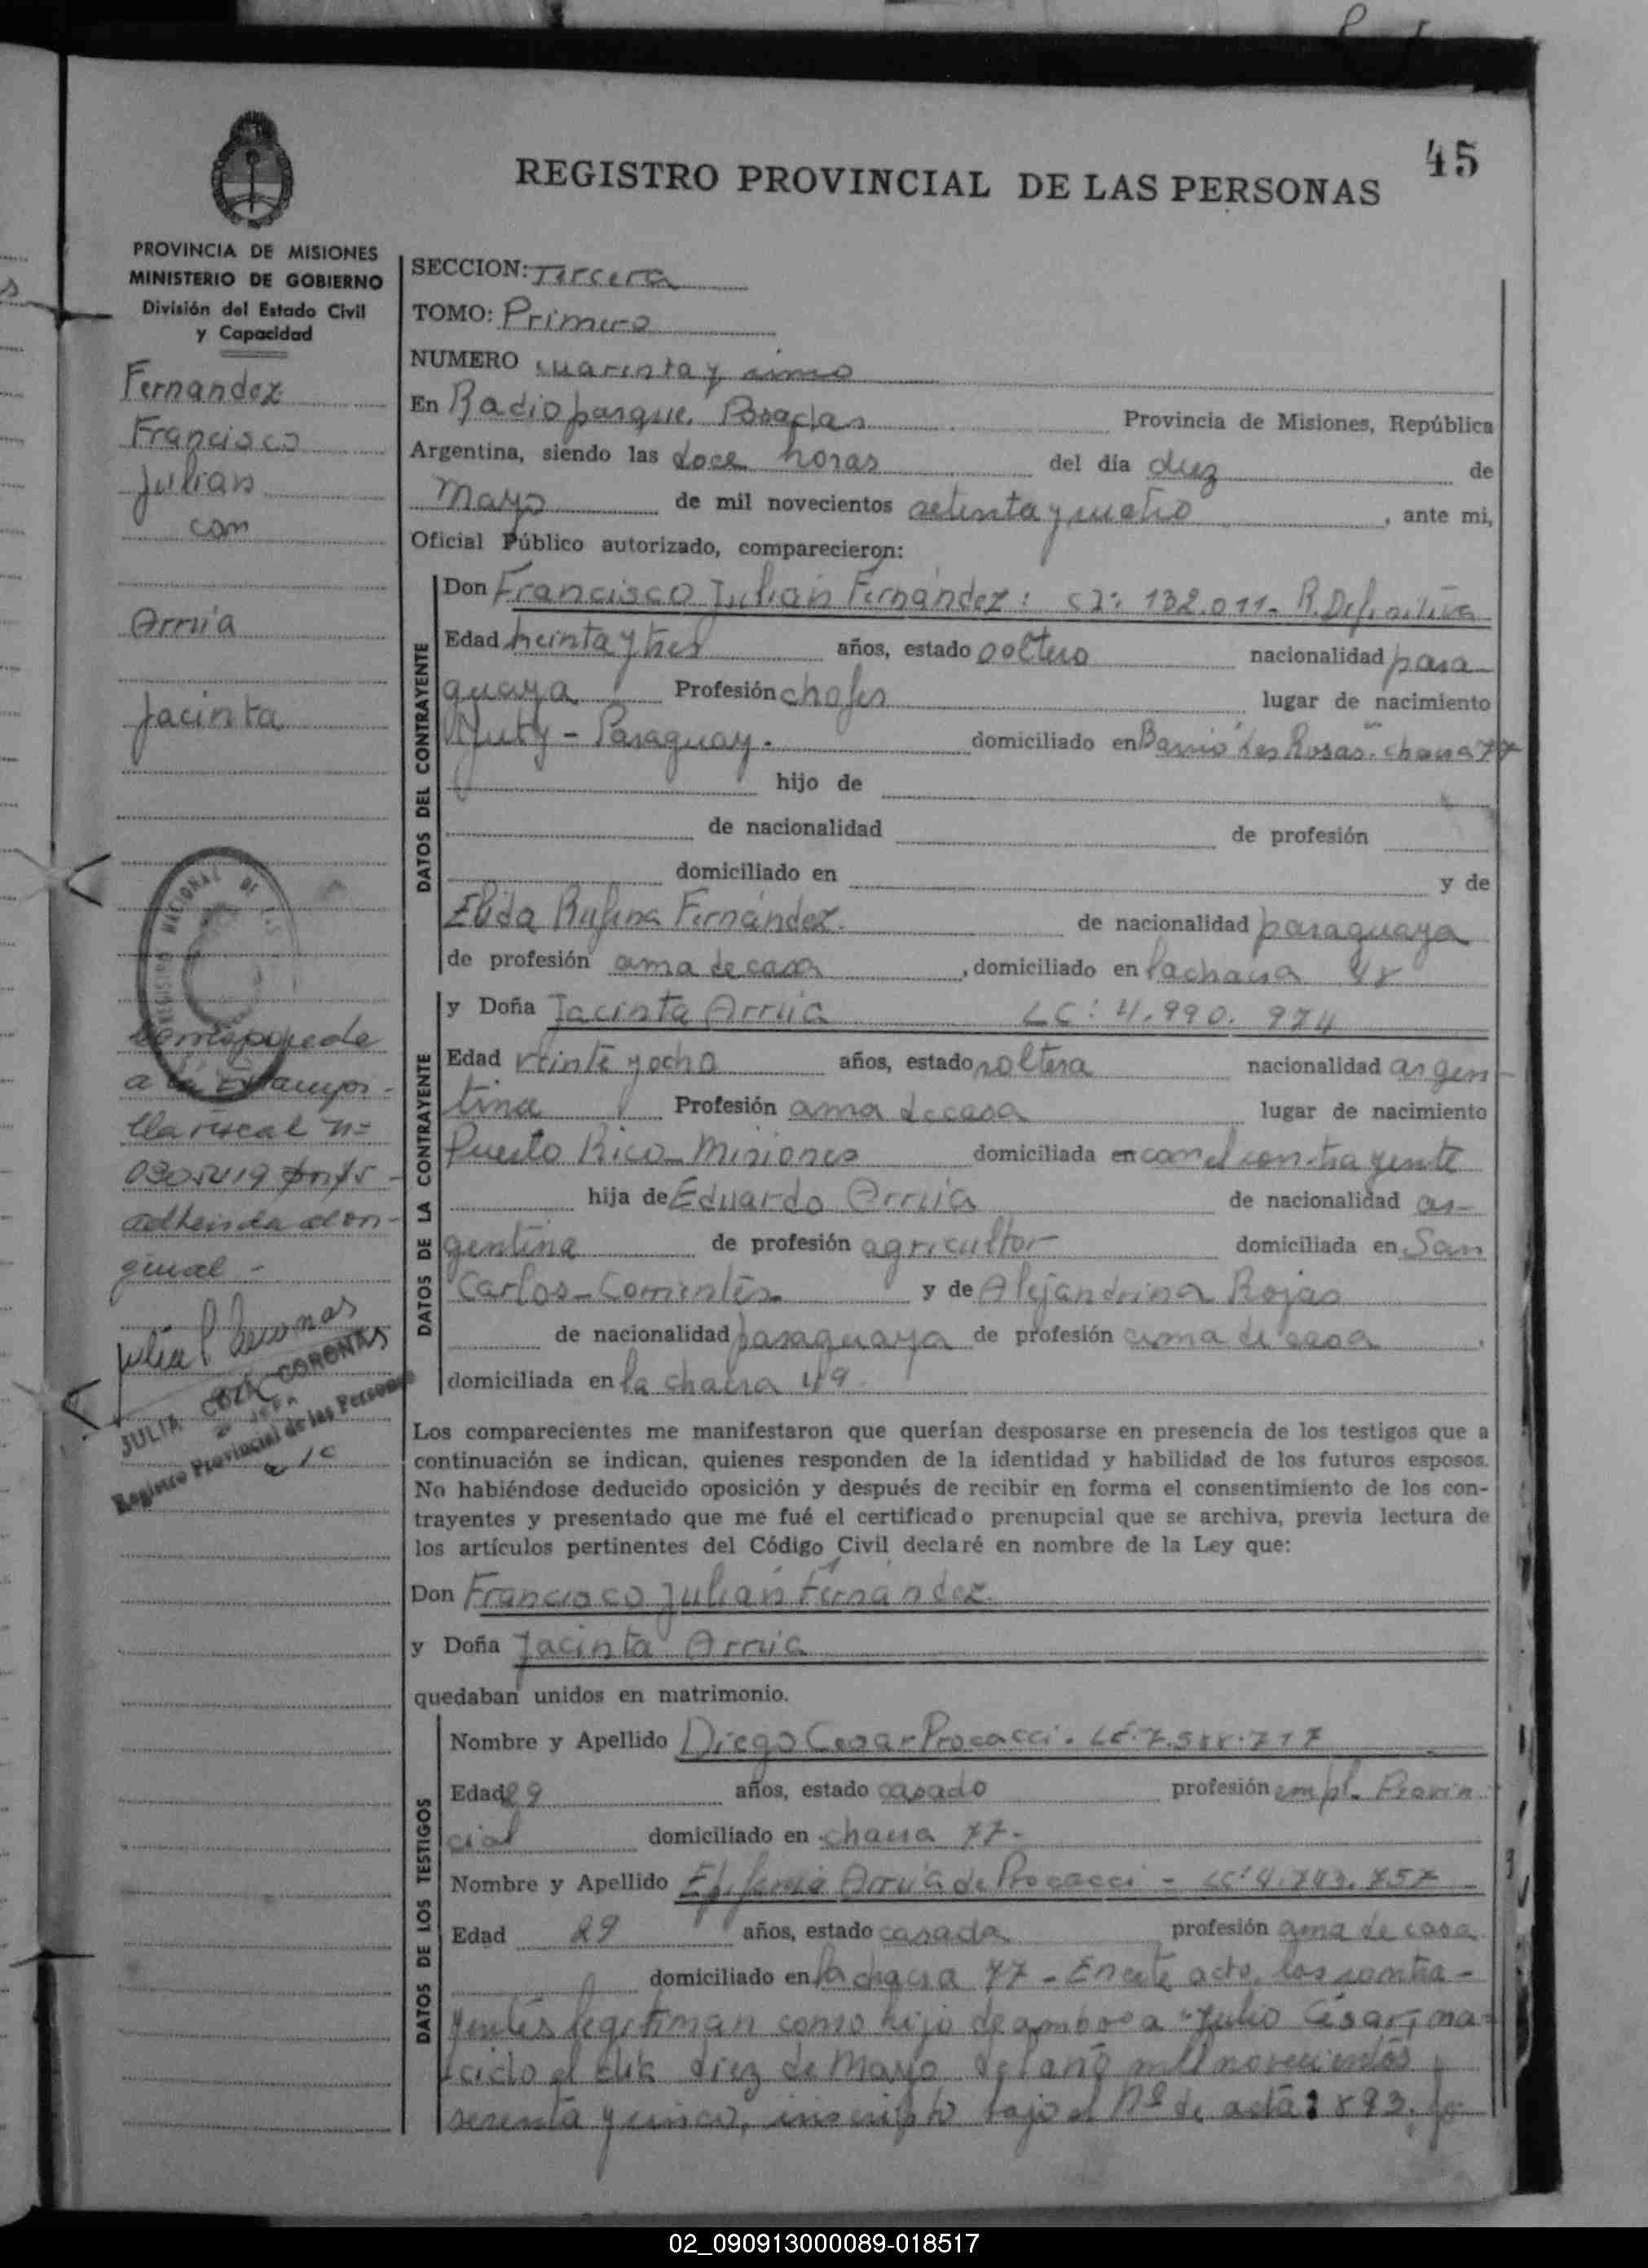 45
REGISTRO PROVINCIAL DE LAS PERSONAS
PROVINCIA DE MISIONES
MINISTERIO DE GOBIERNO
División del Estado Civil
y Capacidad
Fernandez
Francisco
Julian
con
Arrúa
Jacinta
REGISTRO NACIONAL DE LAS
Corresponde
a la Estampi-
lla fiscal nº
adherida al ori-
ginal -
JULIA CORONAS
Registro Provincial de las Personas
SECCION: Tercera
TOMO: Primero
NUMERO cuarenta y cinco
En Radioparque, Posadas Provincia de Misiones, República
Argentina, siendo las doce horas del día diez de
Mayo de mil novecientos setenta y cuatro, ante mi,
Oficial Público autorizado, comparecieron:
DATOS DEL CONTRAYENTE
Don Francisco Julián Fernández: CI: 132.011- R. Definitiva
Edad treinta y tres años, estado soltero nacionalidad para
guaya Profesión chofer lugar de nacimiento
Yuty - Paraguay. domiciliado en Barrio "Las Rosas" chacra 77
hijo de
de nacionalidad de profesión
domiciliado en y de
Elida Rufina Fernández. de nacionalidad paraguaya
de profesión ama de casa, domiciliado en la chacra
DATOS DE LA CONTRAYENTE
y Doña Jacinta Arrúa LC: 4.990.974
Edad veinte y ocho años, estado soltera nacionalidad argen-
tina Profesión ama de casa lugar de nacimiento
Puerto Rico - Misiones domiciliada en con el contrayente
hija de Eduardo Arrúa de nacionalidad ar-
gentina de profesión agricultor domiciliada en San
Carlos - Corrientes y de Alejandrina Rojas
de nacionalidad paraguaya de profesión ama de casa.
domiciliada en la chacra 49
Los comparecientes me manifestaron que querían desposarse en presencia de los testigos que a
continuación se indican, quienes responden de la identidad y habilidad de los futuros esposos.
No habiéndose deducido oposición y después de recibir en forma el consentimiento de los con-
trayentes y presentado que me fué el certificado prenupcial que se archiva, previa lectura de
los artículos pertinentes del Código Civil declaré en nombre de la Ley que:
Don Francisco Julián Fernández
y Doña Jacinta Arrúa
quedaban unidos en matrimonio.
DATOS DE LOS TESTIGOS
Nombre y Apellido Diego Cesar Procacci.
Edad 29 años, estado casado profesión empl. Provin
cial domiciliado en chacra 77-
Nombre y Apellido Epifania Arrúa de Procacci -
Edad 29 años, estado casada profesión ama de casa
domiciliado en la chacra 77 - En este acto, los contra-
yentes legitiman como hijo de ambos a "Julio César", na-
cido el día diez de Mayo del año mil novecientos
sesenta y cinco, inscripto bajo el Nº de acta
02_090913000089-018517